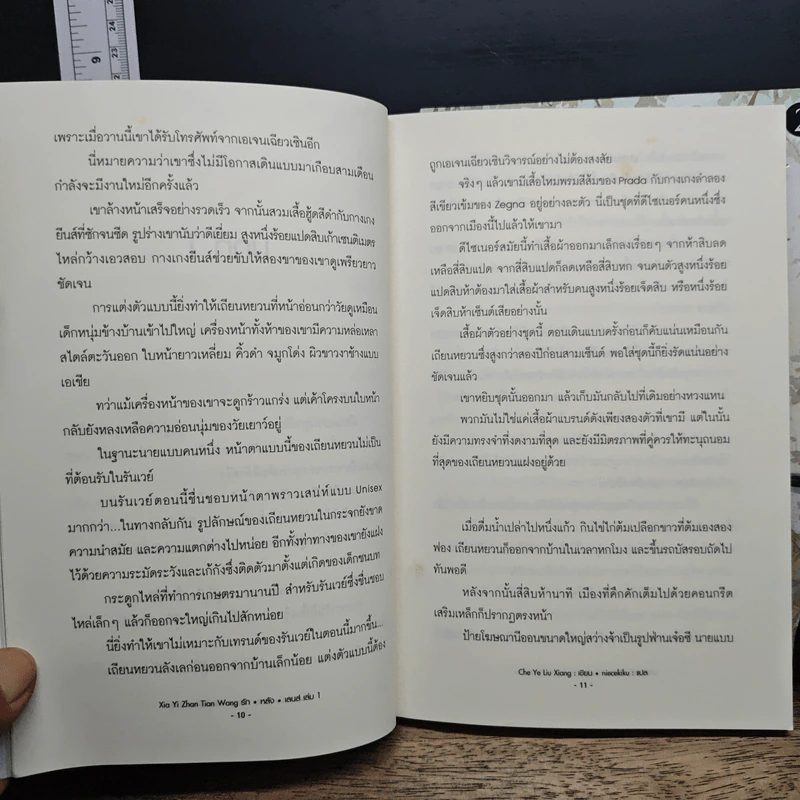 เพราะเมื่อวานนี้เขาได้รับโทรศัพท์จากเอเจนเฉียวเซินอีก
นี่หมายความว่าเขาซึ่งไม่มีโอกาสเดินแบบมาเกือบสามเดือน
กำลังจะมีงานใหม่อีกครั้งแล้ว
เขาล้างหน้าเสร็จอย่างรวดเร็ว จากนั้นสวมเสื้อฮู้ดสีดำกับกางเกง
ยีนส์ที่ซักจนซีด รูปร่างเขานับว่าดีเยี่ยม สูงหนึ่งร้อยแปดสิบเก้าเซนติเมตร
ไหล่กว้างเอวสอบ กางเกงยีนส์ช่วยขับให้สองขาของเขาดูเพรียวยาว
ชัดเจน
การแต่งตัวแบบนี้ยิ่งทำให้เถียนหยวนที่หน้าอ่อนกว่าวัยดูเหมือน
เด็กหนุ่มข้างบ้านเข้าไปใหญ่ เครื่องหน้าทั้งห้าของเขามีความหล่อเหลา
สไตล์ตะวันออก ใบหน้ายาวเหลี่ยม คิ้วดำ จมูกโด่ง ผิวขาวงาช้างแบบ
เอเชีย
ทว่าแม้เครื่องหน้าของเขาจะดูกร้าวแกร่ง แต่เค้าโครงบนใบหน้า
กลับยังหลงเหลือความอ่อนนุ่มของวัยเยาว์อยู่
ในฐานะนายแบบคนหนึ่ง หน้าตาแบบนี้ของเถียนหยวนไม่เป็น
ที่ต้อนรับในรันเวย์
บนรันเวย์ตอนนี้ชื่นชอบหน้าตาพราวเสน่ห์แบบ Unisex
มากกว่า...ในทางกลับกัน รูปลักษณ์ของเถียนหยวนในกระจกยังขาด
ความนำสมัย และความแตกต่างไปหน่อย อีกทั้งท่าทางของเขายังแฝง
ไว้ด้วยความระมัดระวังและเก้กังซึ่งติดตัวมาตั้งแต่เกิดของเด็กชนบท
กระดูกไหล่ที่ทำการเกษตรมานานปี สำหรับรันเวย์ซึ่งชื่นชอบ
ไหล่เล็กๆ แล้วก็ออกจะใหญ่เกินไปสักหน่อย
นี่ยิ่งทำให้เขาไม่เหมาะกับเทรนด์ของรันเวย์ในตอนนี้มากขึ้น...
เถียนหยวนลังเลก่อนออกจากบ้านเล็กน้อย แต่งตัวแบบนี้ต้อง
Xia Yi Zhan Tian Wang รัก • หลัง • เลนส์ เล่ม 1
- 10 -
ถูกเอเจนเฉียวเซินวิจารณ์อย่างไม่ต้องสงสัย
จริงๆ แล้วเขามีเสื้อไหมพรมสีส้มของ Prada กับกางเกงลำลอง
สีเขียวเข้มของ Zegna อยู่อย่างละตัว นี่เป็นชุดที่ดีไซเนอร์คนหนึ่งซึ่ง
ออกจากเมืองนี้ไปแล้วให้เขามา
ดีไซเนอร์สมัยนี้ทำเสื้อผ้าออกมาเล็กลงเรื่อยๆ จากห้าสิบลด
เหลือสี่สิบแปด จากสี่สิบแปดก็ลดเหลือสี่สิบหก จนคนตัวสูงหนึ่งร้อย
แปดสิบห้าต้องมาใส่เสื้อผ้าสำหรับคนสูงหนึ่งร้อยเจ็ดสิบ หรือหนึ่งร้อย
เจ็ดสิบห้าเซ็นต์เสียอย่างนั้น
เสื้อผ้าตัวอย่างชุดนี้ ตอนเดินแบบครั้งก่อนก็คับแน่นเหมือนกัน
เถียนหยวนซึ่งสูงกว่าสองปีก่อนสามเซ็นต์ พอใส่ชุดนี้ก็ยิ่งรัดแน่นอย่าง
ชัดเจนแล้ว
เขาหยิบชุดนั้นออกมา แล้วเก็บมันกลับไปที่เดิมอย่างหวงแหน
พวกมันไม่ใช่แค่เสื้อผ้าแบรนด์ดังเพียงสองตัวที่เขามี แต่ในนั้น
ยังมีความทรงจำที่งดงามที่สุด และยังมีมิตรภาพที่คู่ควรให้ทะนุถนอม
ที่สุดของเถียนหยวนแฝงอยู่ด้วย
เมื่อดื่มน้ำเปล่าไปหนึ่งแก้ว กินไข่ไก่ต้มเปลือกชาวที่ต้มเองสอง
ฟอง เถียนหยวนก็ออกจากบ้านในเวลาหกโมง และขึ้นรถบัสรอบถัดไป
ทันพอดี
หลังจากนั้นสี่สิบห้านาที เมืองที่คึกคักเต็มไปด้วยคอนกรีต
เสริมเหล็กก็ปรากฏตรงหน้า
ป้ายโฆษณานีออนขนาดใหญ่สว่างจ้าเป็นรูปฟ่านเจ๋อซี นายแบบ
Che Ye Liu Xiang : เขียน • niecekiku : แปล
- 11 -